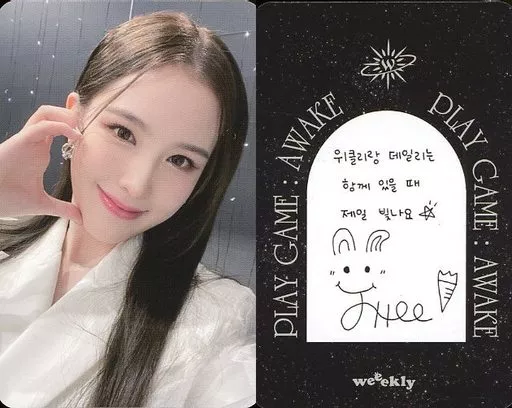 W
PLAY GAME : AWAKE
PLAY GAME : AWAKE
위클리랑 데일리는
함께 있을 때
제일 빛나요 ☆
JHee
weeekly